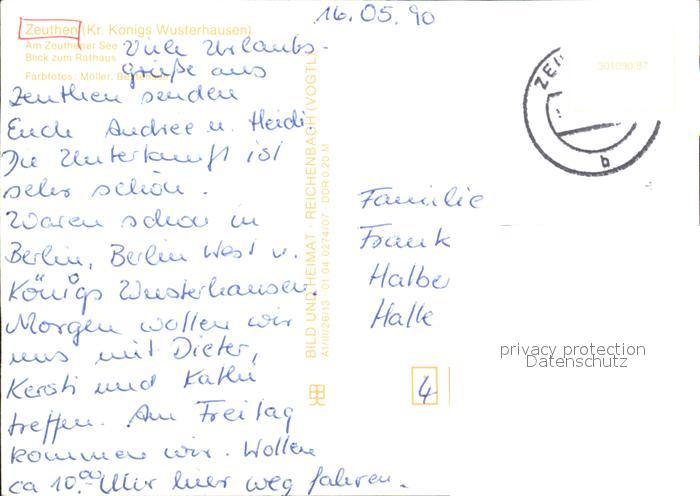 16.05.90
Zeuthen (Kr. Königs Wusterhausen)
Am Zeuthener See
Blick zum Rathaus
Farbfotos: Möller,
Viele Urlaubs-
grüße aus
Zeuthen senden
Euch Andree u. Heidi.
Die Unterkunft ist
sehr schön.
Waren schon in
Berlin, Berlin West u.
Königs Wusterhausen.
Morgen wollen wir
uns mit Dieter,
Kersti und Kathi
treffen. Am Freitag
kommen wir. Wollen
ca 10.00 Uhr hier weg fahren.
BILD UND HEIMAT · REICHENBACH (VOGTL)
A1/III/26/13 · 01 04 0274/07 DDR 0,20 M
301090/87
ZEU
b
Familie
Frank
Halbe
Halle
4
privacy protection
Datenschutz